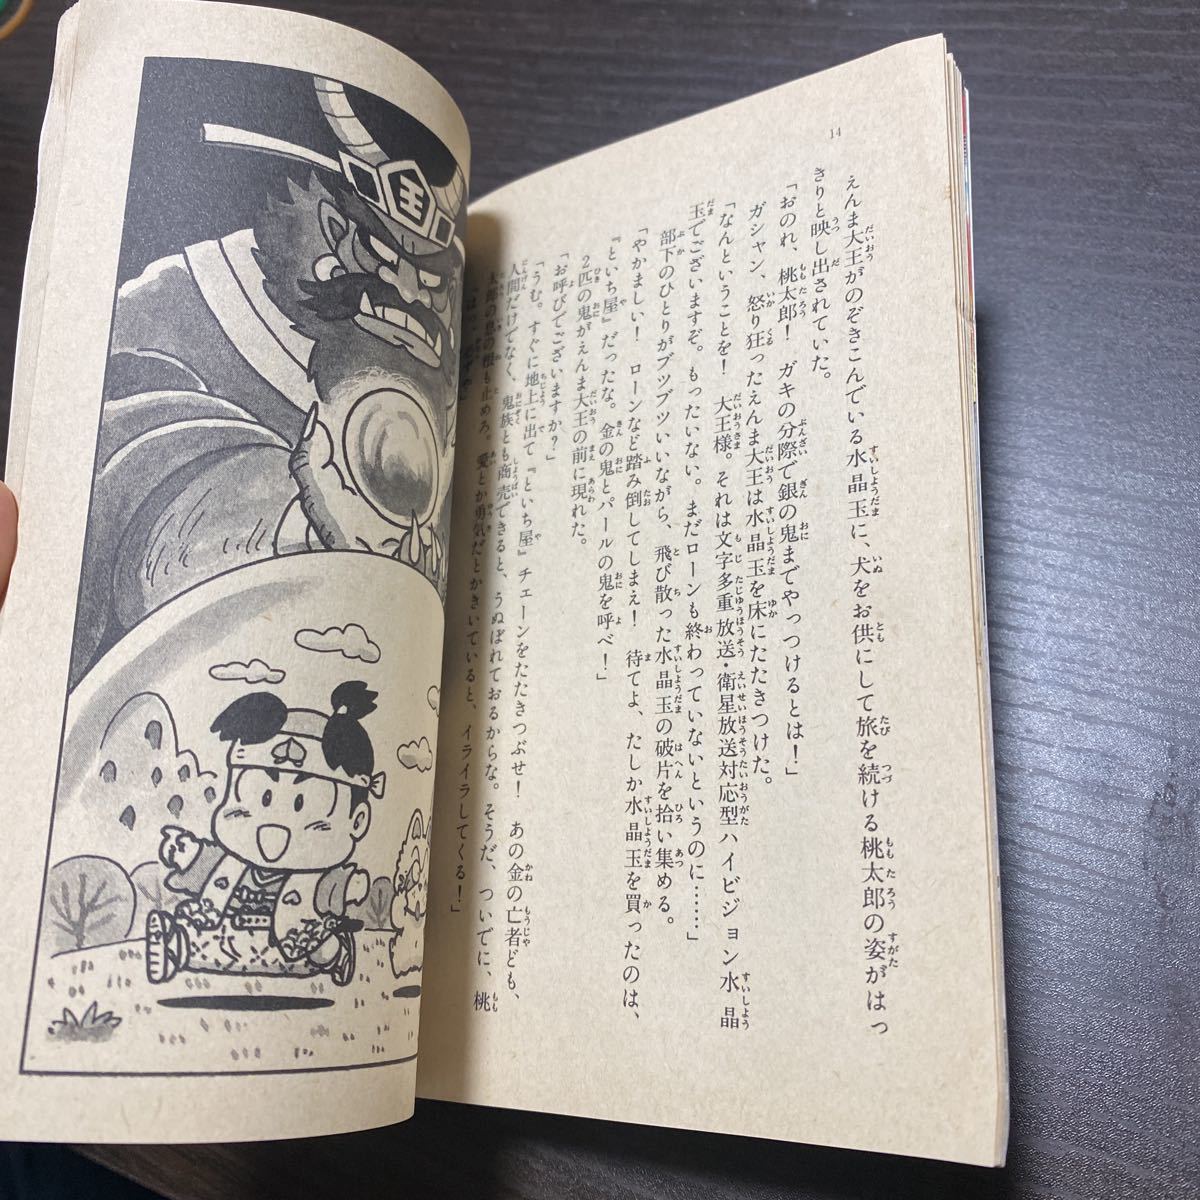 14
えんま大王がのぞきこんでいる水晶玉に、犬をお供にして旅を続ける桃太郎の姿がはっ
きりと映し出されていた。
「おのれ、桃太郎！　ガキの分際で銀の鬼までやっつけるとは！」
ガシャン、怒り狂ったえんま大王は水晶玉を床にたたきつけた。
「なんということを！　大王様。それは文字多重放送・衛星放送対応型ハイビジョン水晶
玉でございますぞ。もったいない。まだローンも終わっていないというのに……」
部下のひとりがブツブツいいながら、飛び散った水晶玉の破片を拾い集める。
「やかましい！　ローンなど踏み倒してしまえ！　待てよ、たしか水晶玉を買ったのは、
『といち屋』だったな。金の鬼とパールの鬼を呼べ！」
２匹の鬼がえんま大王の前に現れた。
「お呼びでございますか？」
「うむ。すぐに地上に出て『といち屋』チェーンをたたきつぶせ！　あの金の亡者ども、
人間だけでなく、鬼族とも商売できると、うぬぼれておるからな。そうだ、ついでに、桃
太郎の息の根も止めろ。愛とか勇気だとかきいていると、イライラしてくる！」
王